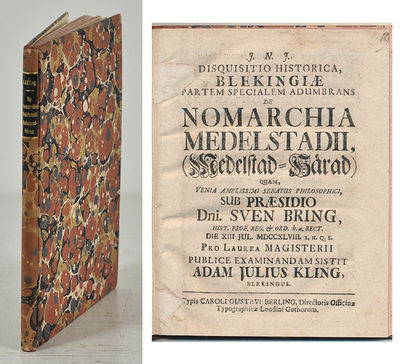 J. N. J.
DISQUISITIO HISTORICA,
BLEKINGIÆ
PARTEM SPECIALEM ADUMBRANS
DE
NOMARCHIA
MEDELSTADII,
(Medelstad=Härad)
QUAM,
VENIA AMPLISSIMI SENATUS PHILOSOPHICI,
SUB PRÆSIDIO
Dni. SVEN BRING,
HIST. PROF. REG. & ORD. h. a. RECT.
DIE XIII JUL. MDCCXLVIII. L. H. Q. S.
PRO LAUREA MAGISTERII
PUBLICE EXAMINANDAM SISTIT
ADAM JULIUS KLING,
BLEKINGUS.
Typis CAROLI GUSTAVI BERLING, Directoris Officinæ
Typographicæ Londini Gothorum.